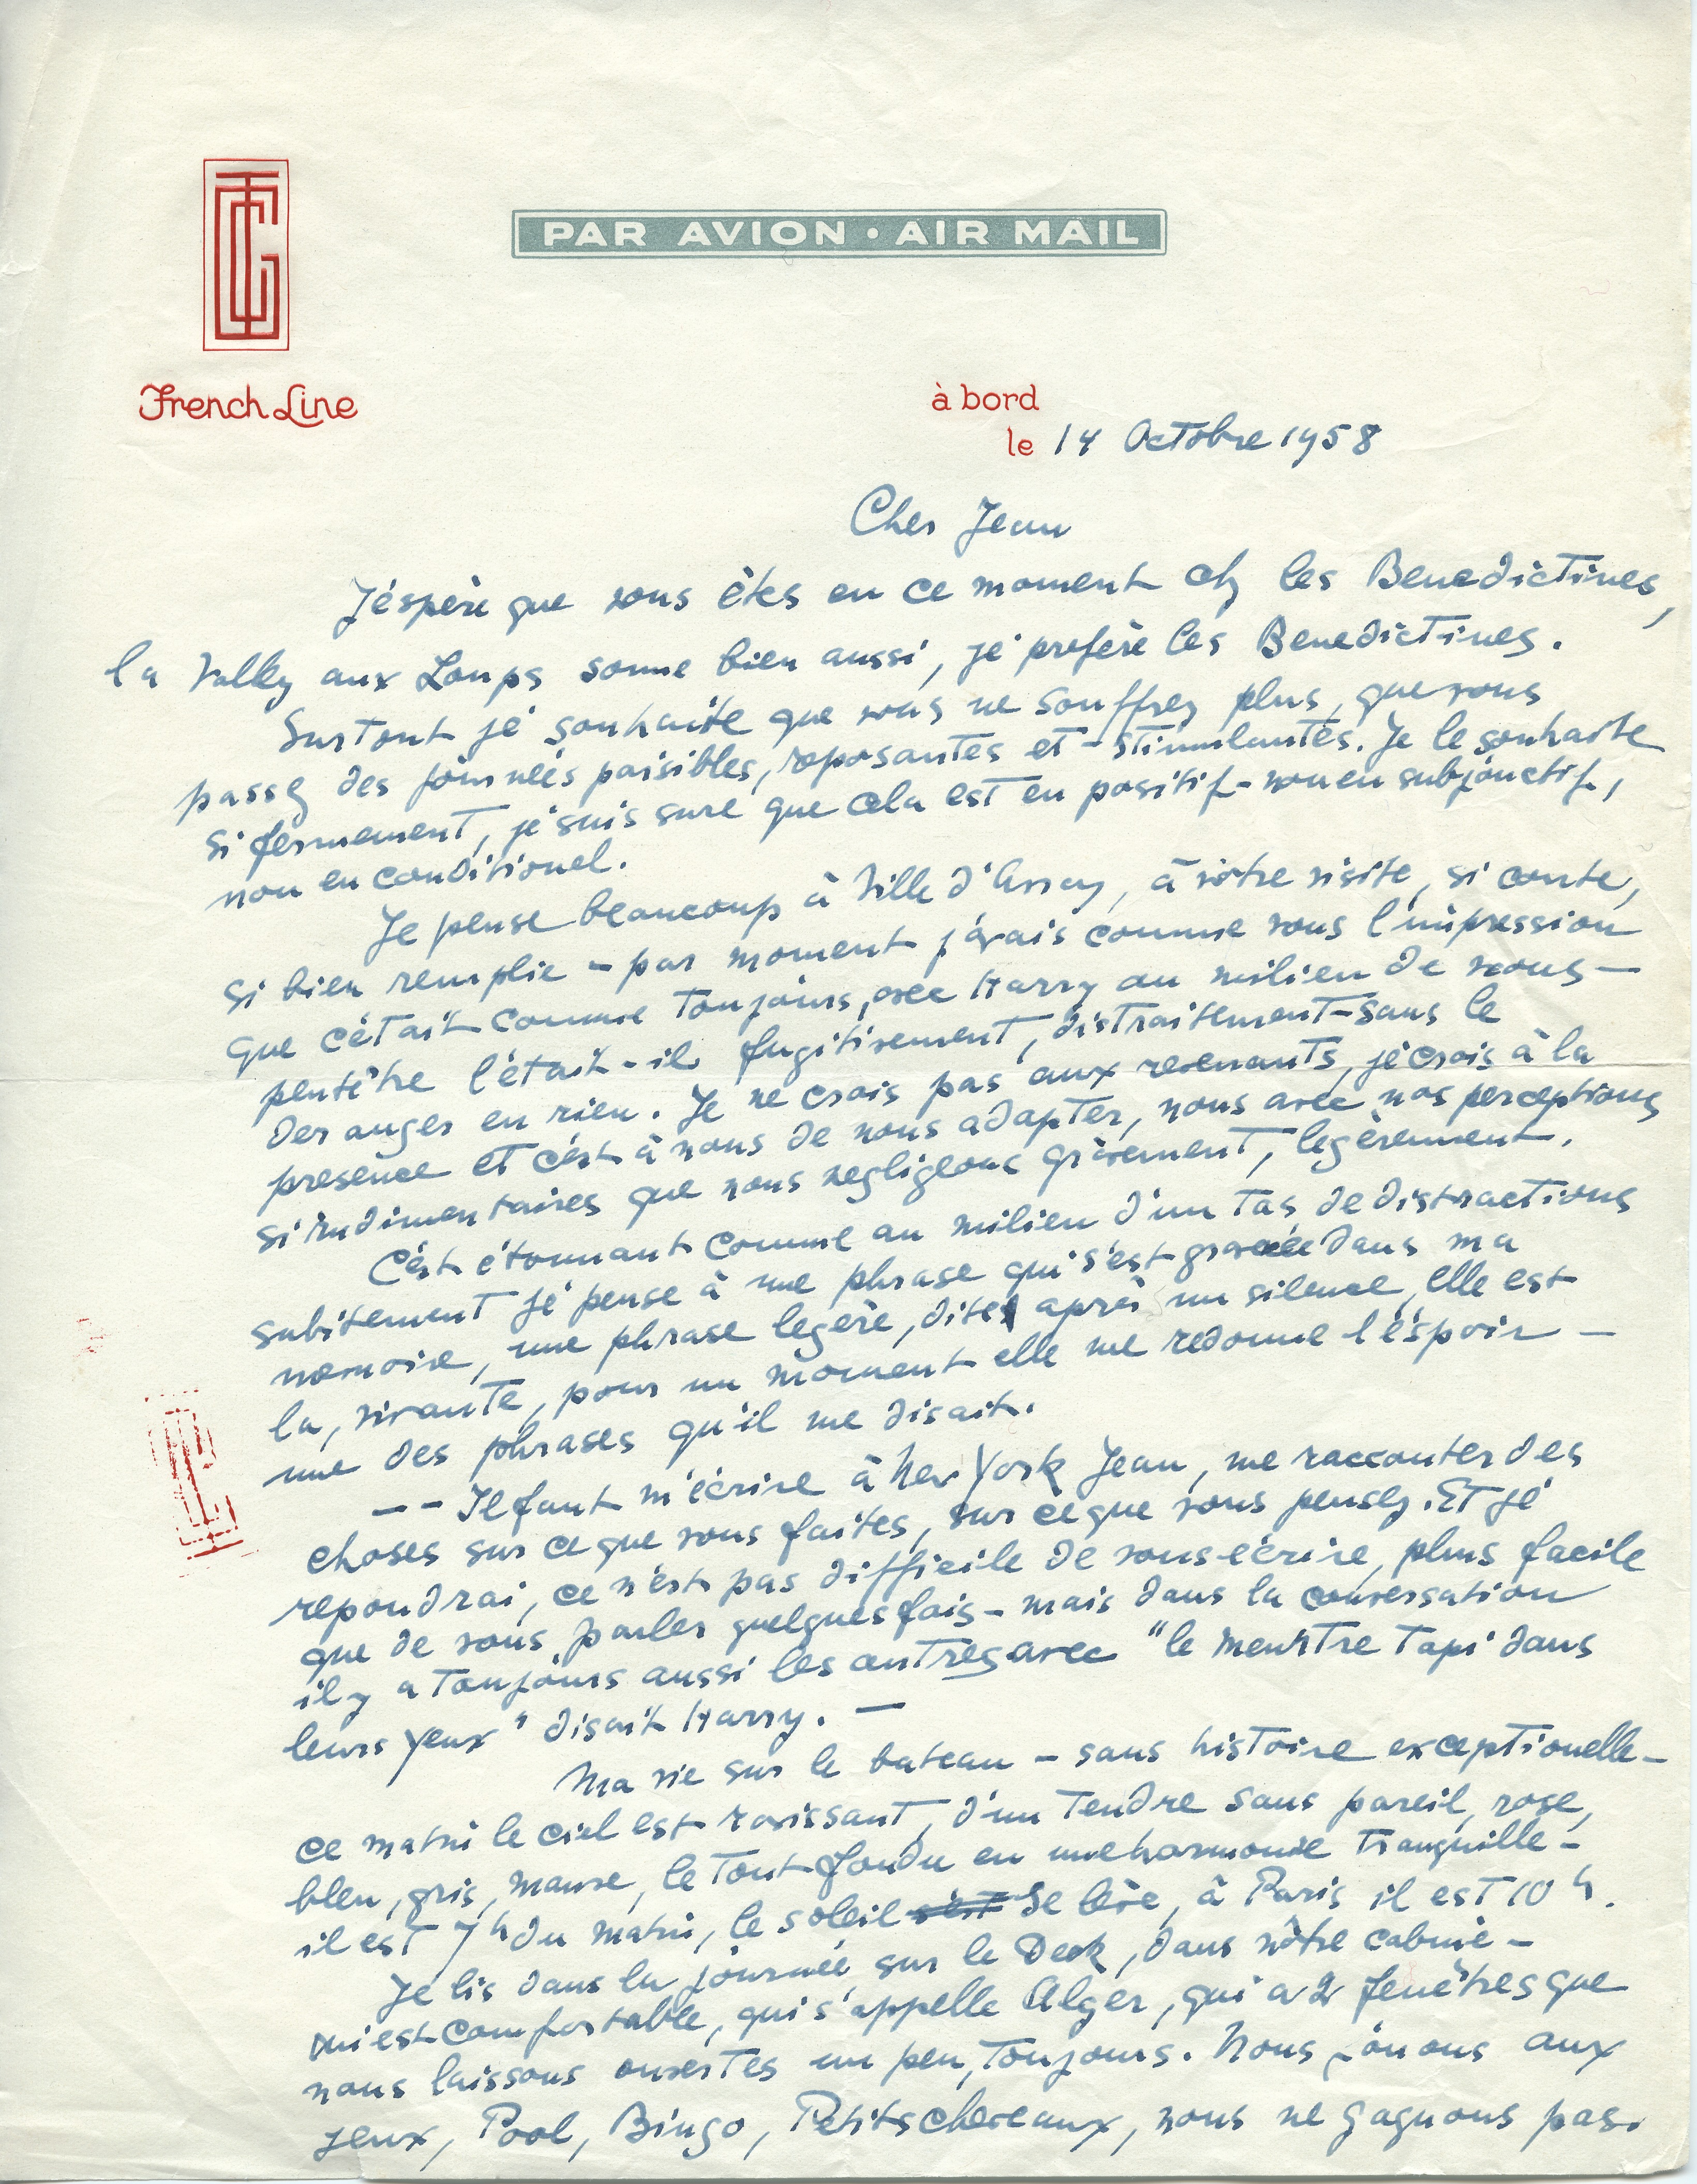 PAR AVION • AIR MAIL
French Line
à bord
le 14 Octobre 1958
Cher Jean
J'éspère que vous êtes en ce moment chz les Benedictines,
la Valley aux Loups sonne bien aussi, je préfère les Benedictines.
Surtout je souhaite que vous ne souffrez plus, que vous
passez des journeés paisibles, reposantes et - stimulantes. Je le souhaite
si fermement, je suis sure que cela est en positif - non en subjonctif,
non en conditionel.
Je pense beaucoup à Ville d'Avray, à vôtre visite, si courte,
si bien remplie - par moment j'avais comme vous l'impression
que c'était comme toujours, avec Harry au milieu de nous -
peutêtre l'était-il fugitivement, distraitement - sans le
deranger en rien. Je ne crois pas aux revenants, je crois à la
presence et c'est à nous de nous adapter, nous avec nos perceptions
si rudimentaires que nous negligeons gràvement, legèrement.
C'est étonnant comme au milieu d'un tas de distractions
subitement je pense à une phrase qui s'est gravée dans ma
memoire, une phrase legère, dite après un silence, elle est
la, vivante, pour un moment elle me redonne l'éspoir -
une des phrases qu'il me disait.
-- Il faut m'écrire à New York Jean, me racconter des
choses sur ce que vous faites, sur ce que vous pensez. Et je
repondrai, ce n'est pas difficile de vous écrire, plus facile
que de vous parler quelques fois - mais dans la conversation
il y a toujours aussi les autres avec "le meurtre tapi dans
leurs yeux" disait Harry. —
Ma vie sur le bateau - sans histoire exceptionelle -
ce matin le ciel est ravissant, d'un tendre sans pareil, rose,
bleu, gris, mauve, le tout fondu en une harmonie tranquille -
il est 7h du matin, le soleil s'est se lève, à Paris il est 10 h.
Je lis dans la journeé sur le Deck, dans nôtre cabine -
qui est comfortable, qui s'appelle Alger, qui a 2 fenêtres que
nous laissons ouvertes un peu, toujours. Nous jouons aux
jeux, Pool, Bingo, Petits chevaux, nous ne gagnons pas.